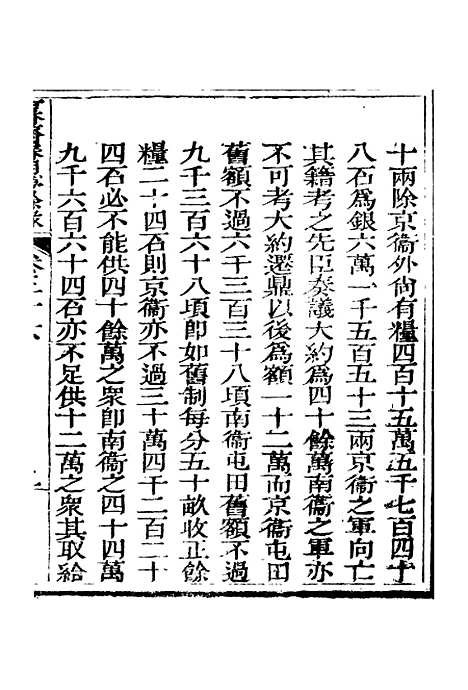 十兩除京衞外尙有糧四百十五萬五千七百四十
八石爲銀六萬一千五百五十三兩京衞之軍向亡
其籍考之先臣奏議大約爲四十餘萬南衞之軍亦
不可考大約遷鼎以後爲額一十二萬而京衞屯田
舊額不過六千三百三十八項南衞屯田舊額不過
九千三百六十八項卽如舊制每分五十畝收正餘
糧二十四石則京衞亦不過三十萬四千二百二十
四石必不能供四十餘萬之衆卽南衞之四十四萬
九千六百六十四石亦不足供十二萬之衆其取給